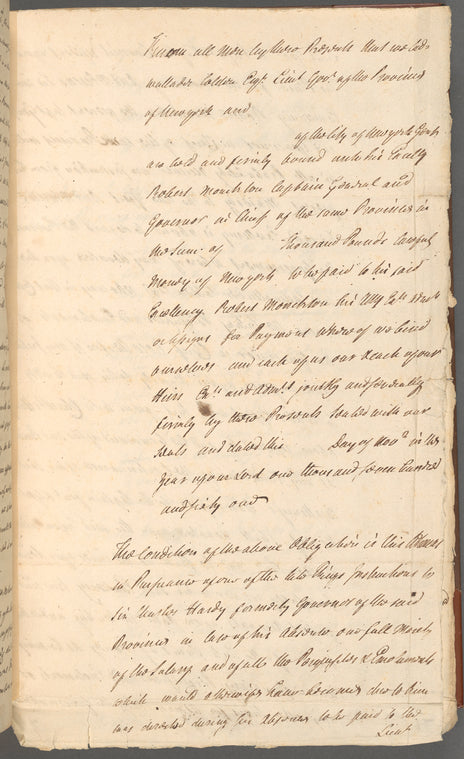 Know all Men by these Presents that we Cad-
wallader Colden Esqr. Lieut Govr. of the Province
of New york and
of the City of New york Gent
are held and firmly bound unto his Excelly
Robert Monckton Captain General and
Governor in Chief of the same Province in
the Sum of Thousand Pounds lawful
Money of New york to be paid to his said
Excellency Robert Monckton his
or assigns for Payment whereof we bind
ourselves and each of us our & each of our
Heirs Exrs. and Admrs. jointly and severally
firmly by these Presents Sealed with our
Seals and dated this Day of Novr. in the
Year of our Lord one thousand seven hundred
and sixty one
The Condition of the above Obligation is this Whereas
in Pursuance of one of the late Kings Instructions to
Sir Charles Hardy formerly Governor of the said
Province in case of his Absence one full Moiety
of the Salary and of all the Perquisites & Emoluments
which would otherwise have become due to him
was directed during his absence to be paid to the
Lieut